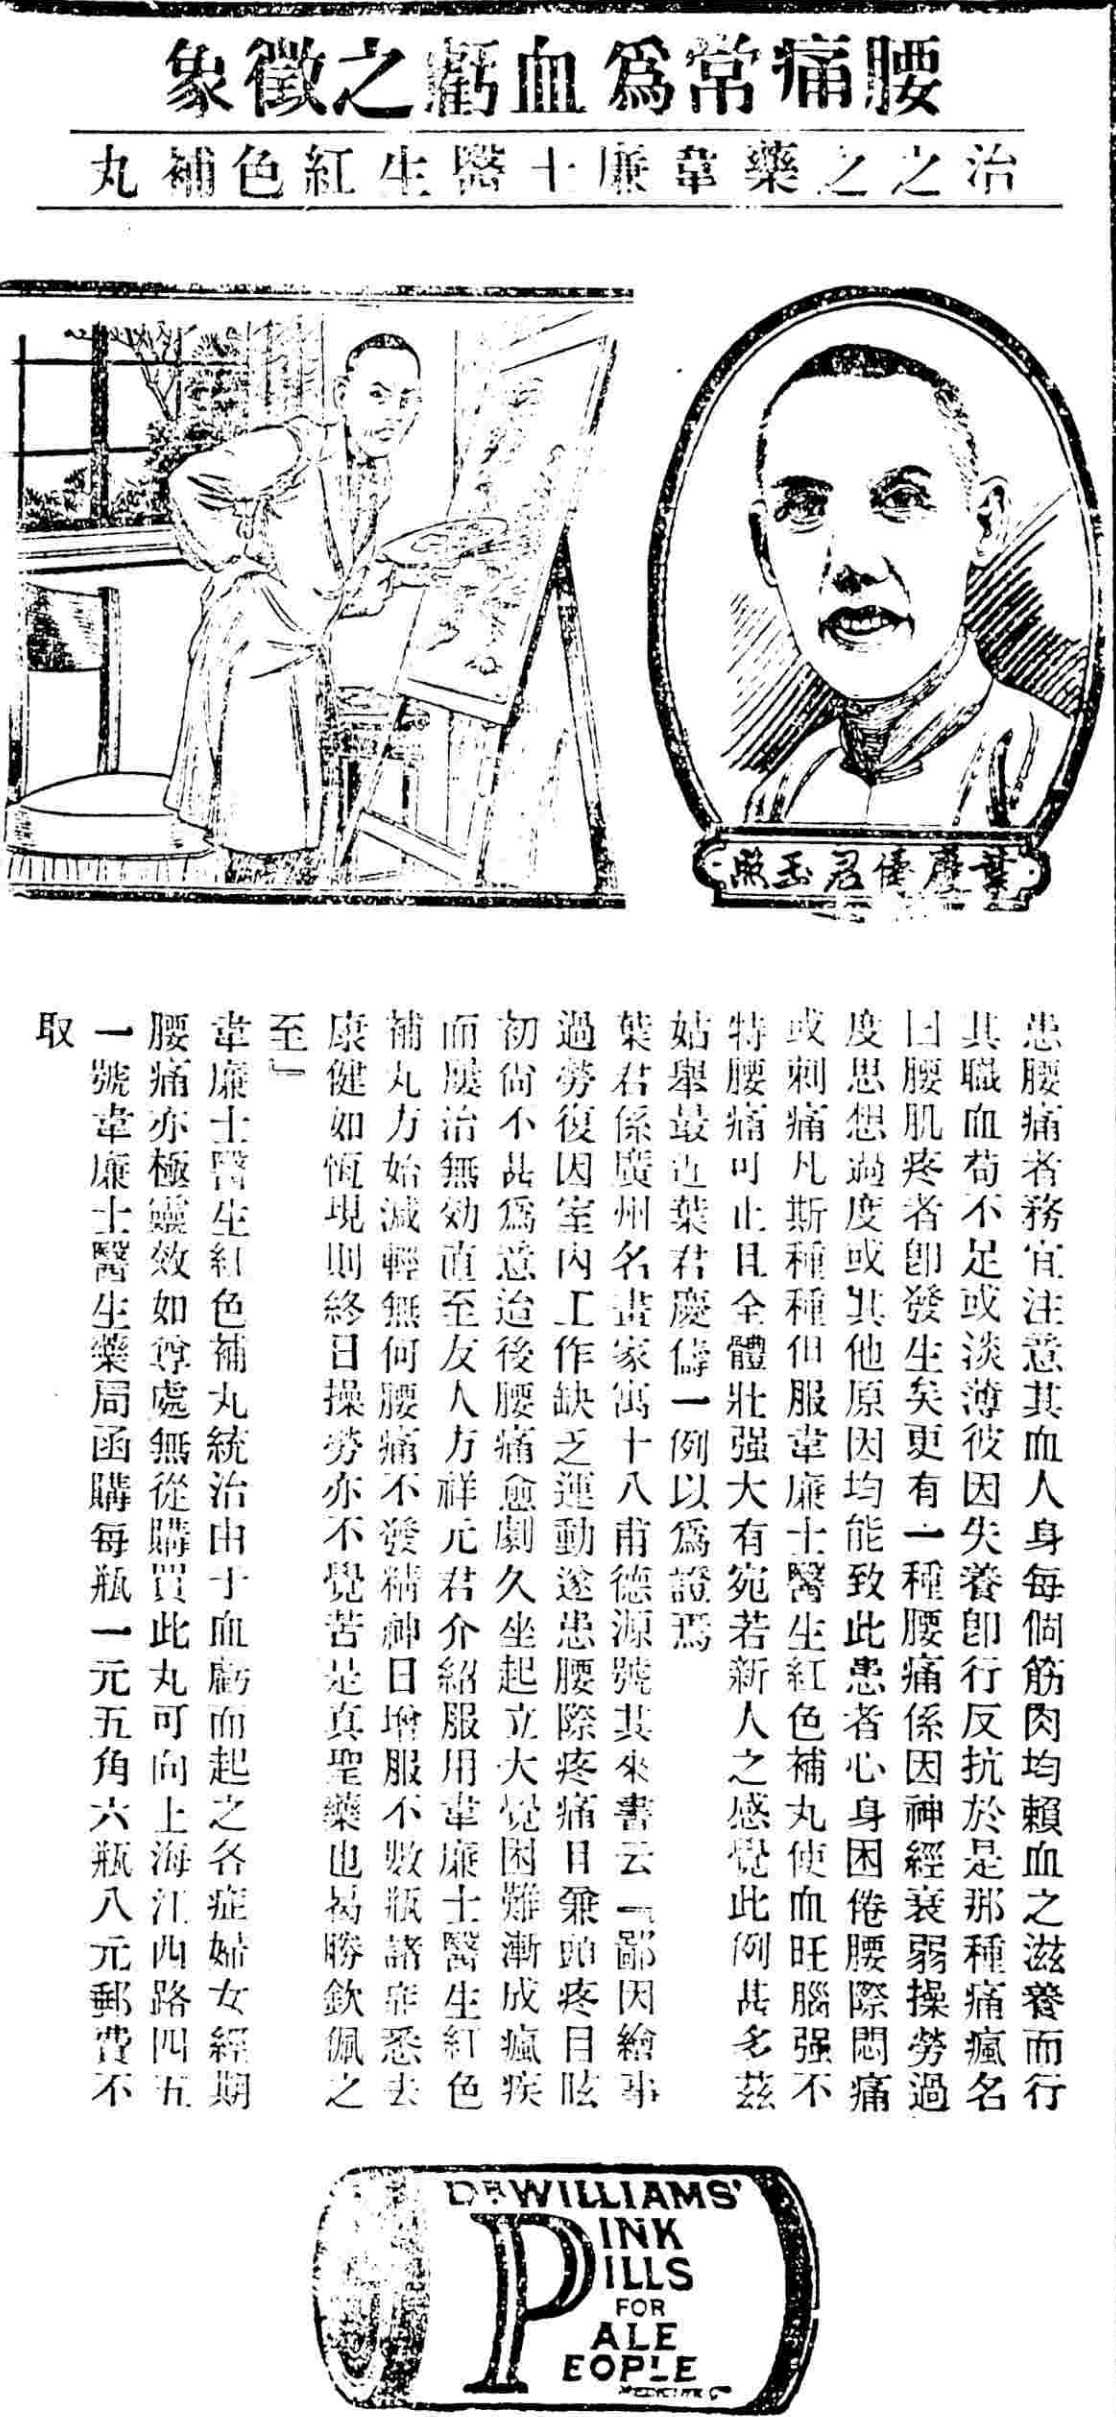 腰痛常爲血虧之徵象
治之之藥韋廉士醫生紅色補丸
葉慶儔君玉照
患腰痛者務宜注意其血人身每個筋肉均賴血之滋養而行
其職血苟不足或淡薄彼因失養卽行反抗於是那種痛瘋名
曰腰肌疼者卽發生矣更有一種腰痛係因神經衰弱操勞過
度思想過度或其他原因均能致此患者心身困倦腰際悶痛
或刺痛凡斯種種但服韋廉士醫生紅色補丸使血旺腦强不
特腰痛可止且全體壯强大有宛若新人之感覺此例甚多茲
姑舉最近葉君慶儔一例以爲證焉
葉君係廣州名畫家寓十八甫德源號其來書云「鄙因繪事
過勞復因室內工作缺乏運動遂患腰際疼痛日兼頭疼目眩
初尙不甚爲意迨後腰痛愈劇久坐起立大覺困難漸成瘋疾
而屢治無効直至友人方祥元君介紹服用韋廉士醫生紅色
補丸力始減輕無何腰痛不發精神日增服不數瓶諸症悉去
康健如恆現則終日操勞亦不覺苦是真聖藥也曷勝欽佩之
至」
韋廉士醫生紅色補丸統治由于血虧而起之各症婦女經期
腰痛亦極靈效如尊處無從購買此丸可向上海江西路四五
一號韋廉士醫生藥局函購每瓶一元五角六瓶八元郵費不
取
DR WILLIAMS'
PINK
PILLS
FOR
PALE
PEOPLE
MEDICINE Co